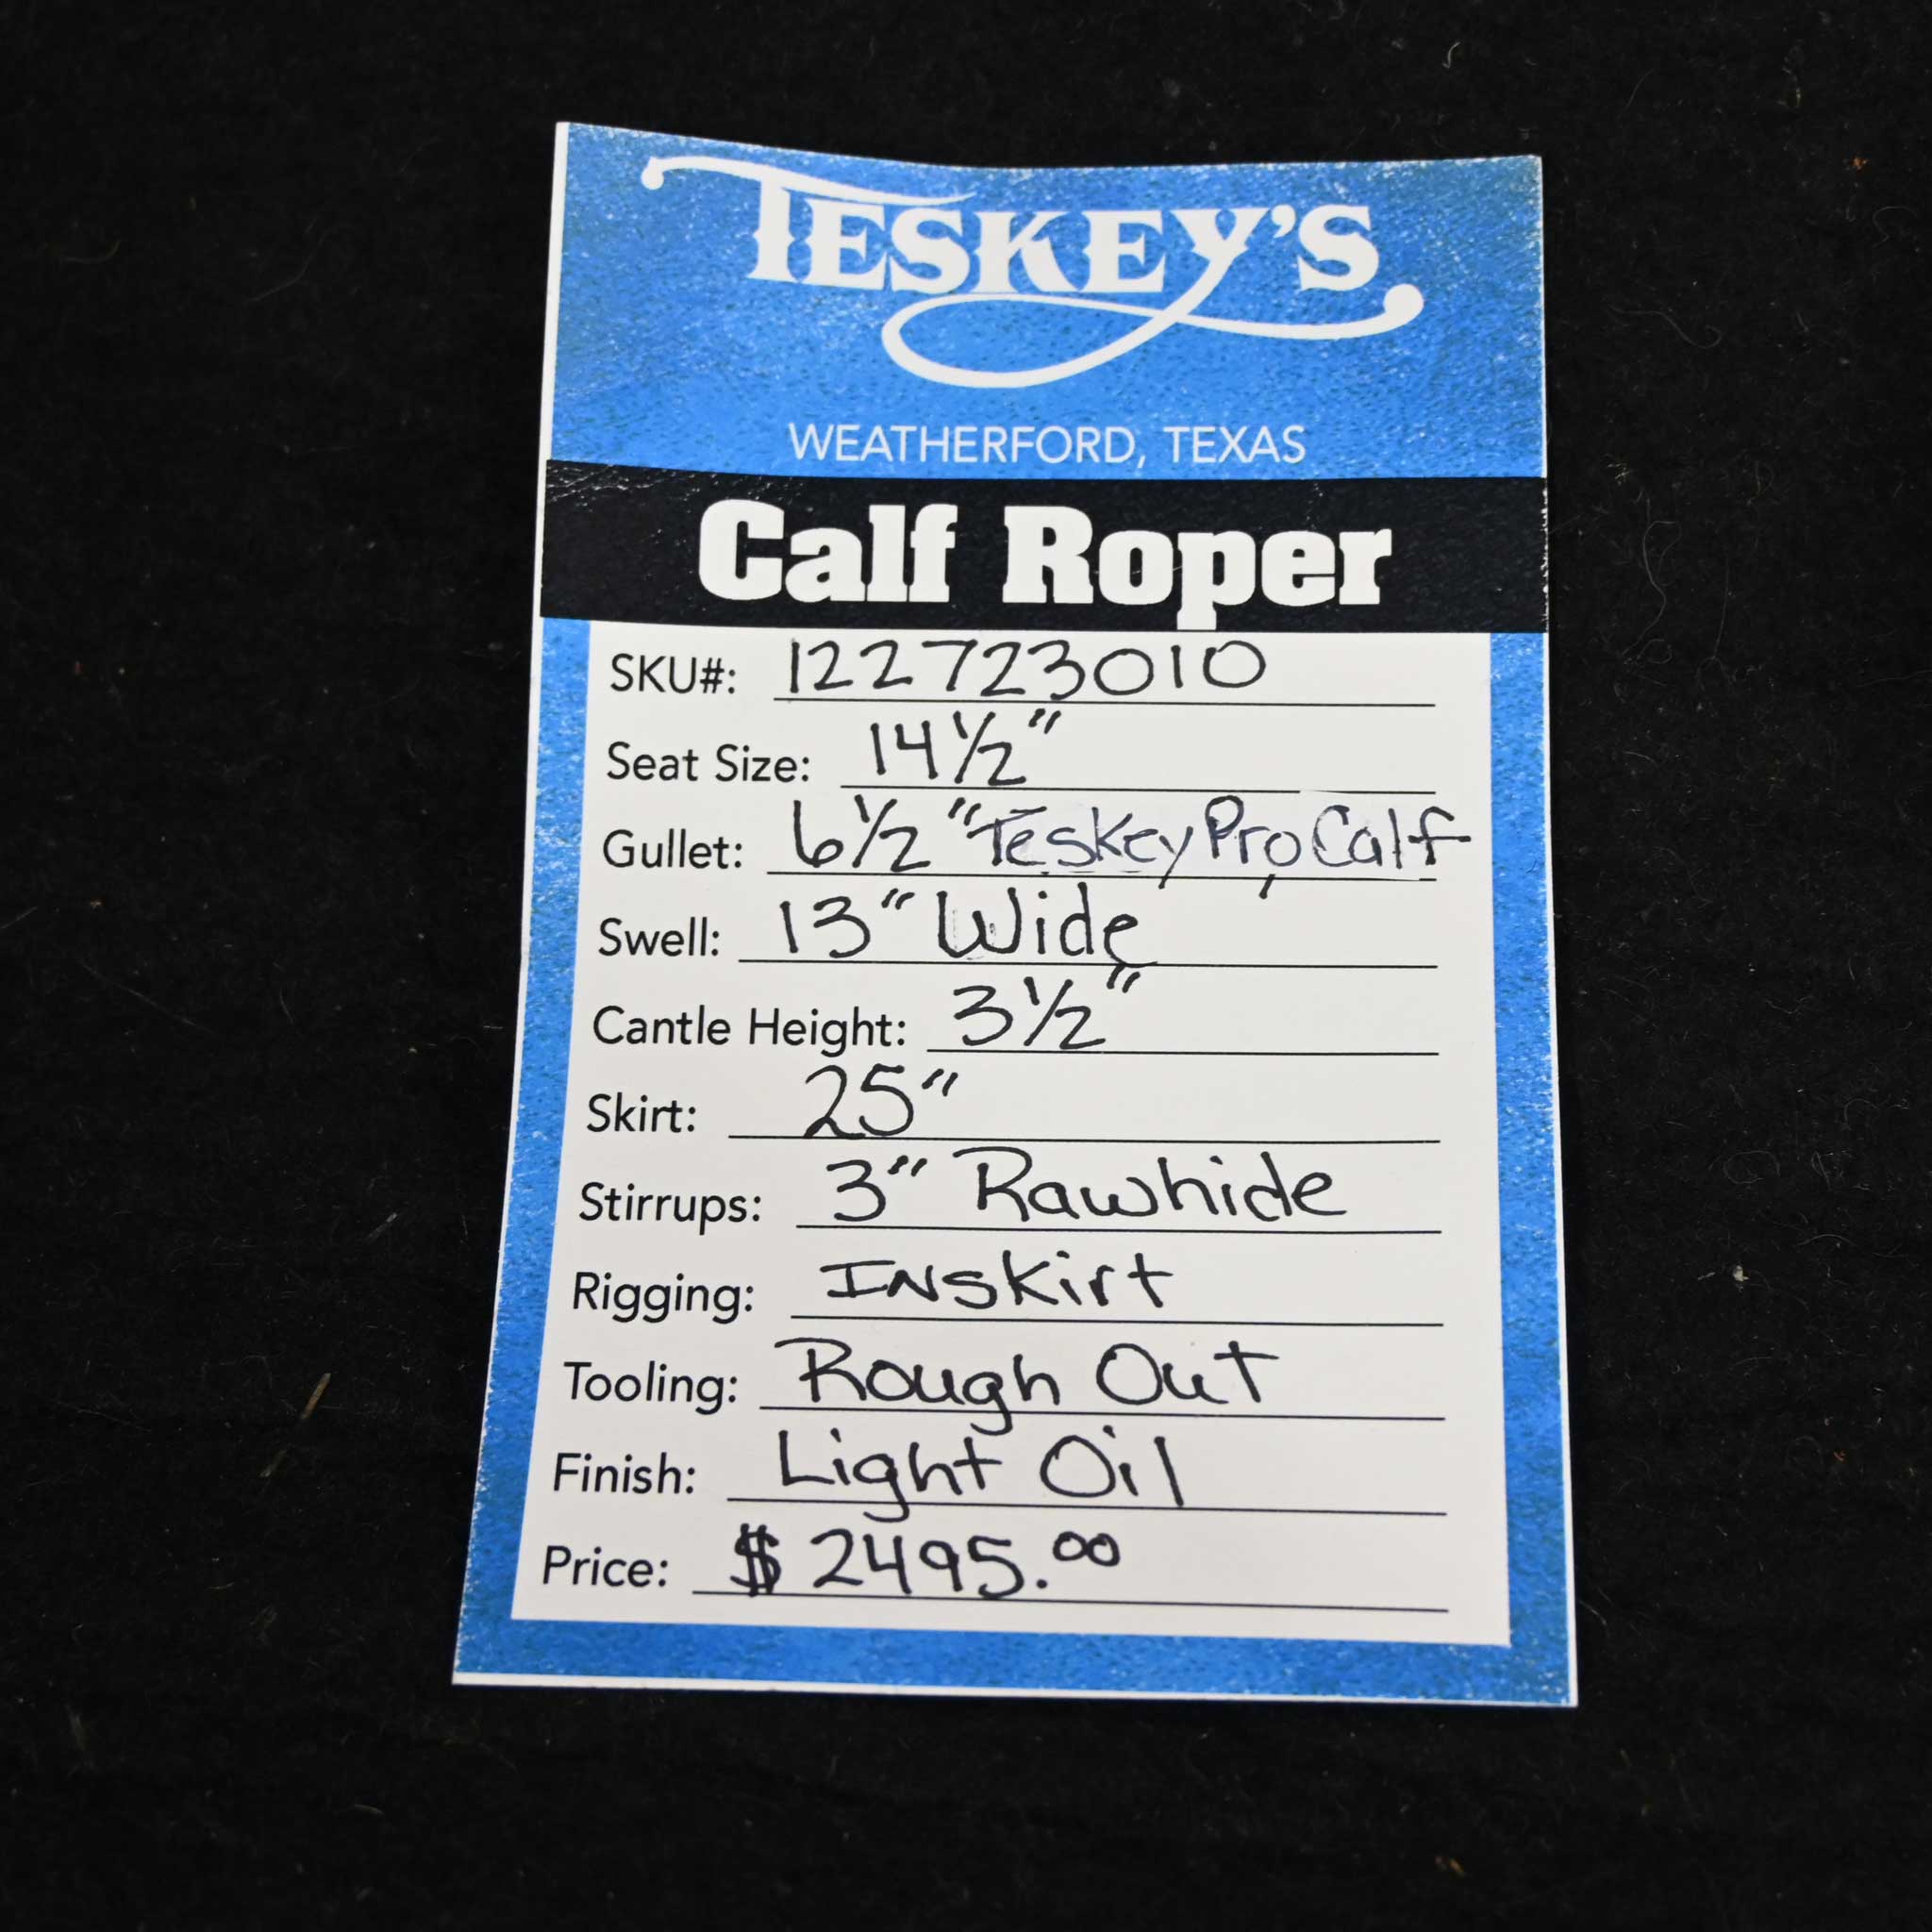 TESKEY'S
WEATHERFORD, TEXAS
Calf Roper
SKU#: 122723010
Seat Size: 14½"
Gullet: 6½" Teskey Pro Calf
Swell: 13" Wide
Cantle Height: 3½"
Skirt: 25"
Stirrups: 3" Rawhide
Rigging: INskirt
Tooling: Rough Out
Finish: Light Oil
Price: $2495.00